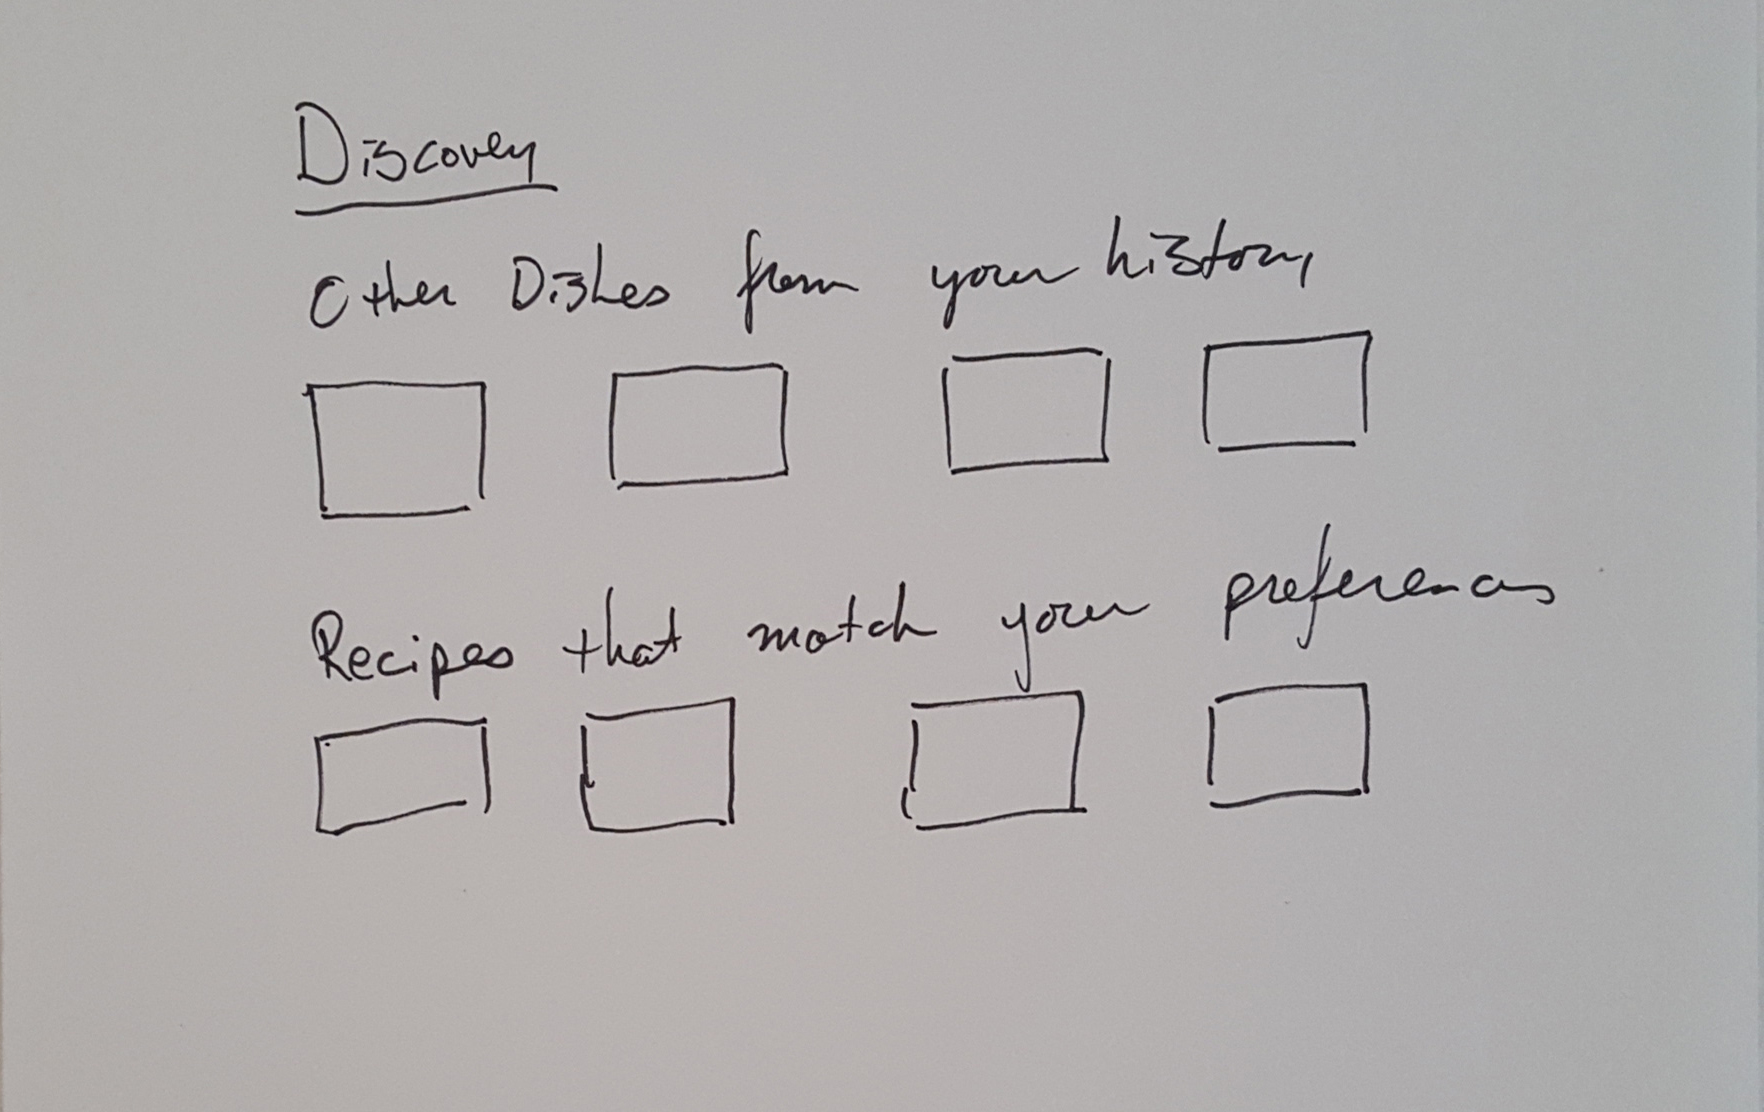 Discovery
Other Dishes from your history
Recipes that match your preferences